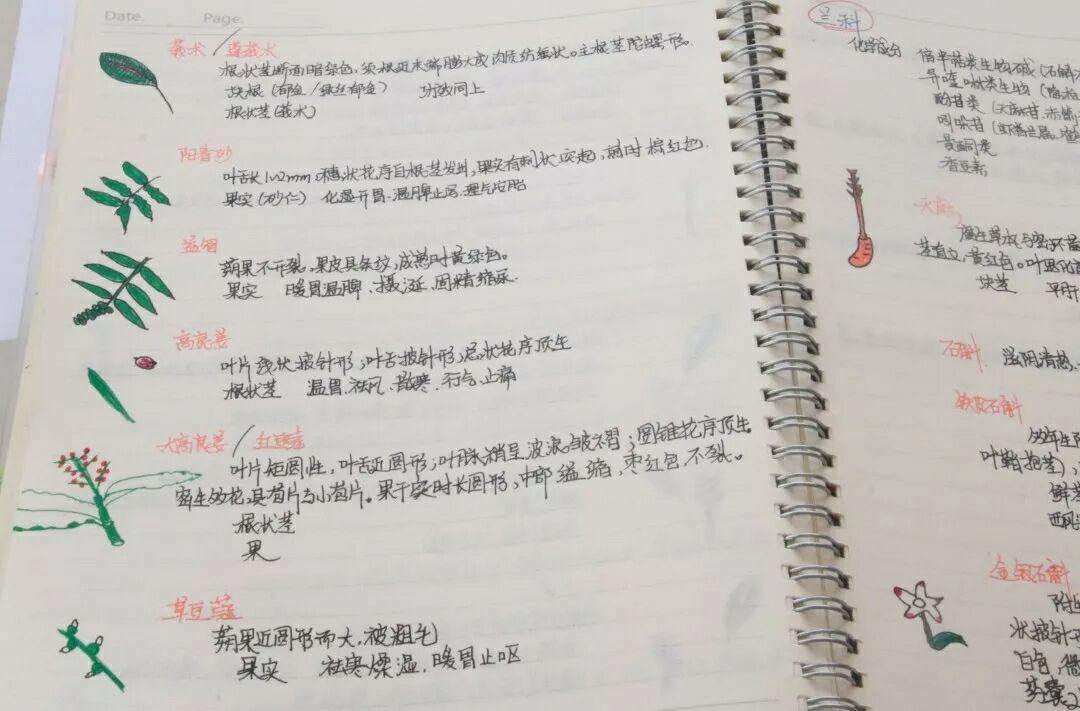 Date.      Page.
莪术/蓬莪术
根状茎断面暗绿色,须根近末端膨大成肉质纺缍状。主根茎陀螺形.
块根(郁金/绿丝郁金)  功效同上
根状茎(莪术)
阳春砂
叶舌长1~2mm,穗状花序自根茎发出,果实有刺状突起,熟时棕红色.
果实(砂仁) 化湿开胃.温脾止泻.理气安胎
益智
蒴果不开裂,果皮具条纹,成熟时黄绿色。
果实  暖胃温脾、摄涎、固精缩尿
高良姜
叶片线状披针形;叶舌披针形;总状花序顶生
根状茎  温胃.祛风.散寒.行气.止痛
大高良姜/红豆蔻
叶片矩圆性,叶舌近圆形;叶脉稍呈波浪皱褶;圆锥花序顶生
密生多花,具苞片与小苞片。果干实时长圆形,中部缢缩,枣红色,不裂。
根状茎
果
草豆蔻
蒴果近圆形而大,被粗毛
果实  祛寒燥湿,暖胃止呕
兰科
化学成分 倍半萜类生物碱(石斛
异喹啉类生物
酚苷类(天麻苷.赤箭
吲哚苷(虾脊兰苷
黄酮类
香豆素
天麻
茎直立,黄红色。叶退化
块茎  平肝
石斛 滋阴清热
铁皮石斛
多年生
叶鞘抱茎
鲜茎
西枫
金钗石斛
附生
状披针形
白色,
药囊2